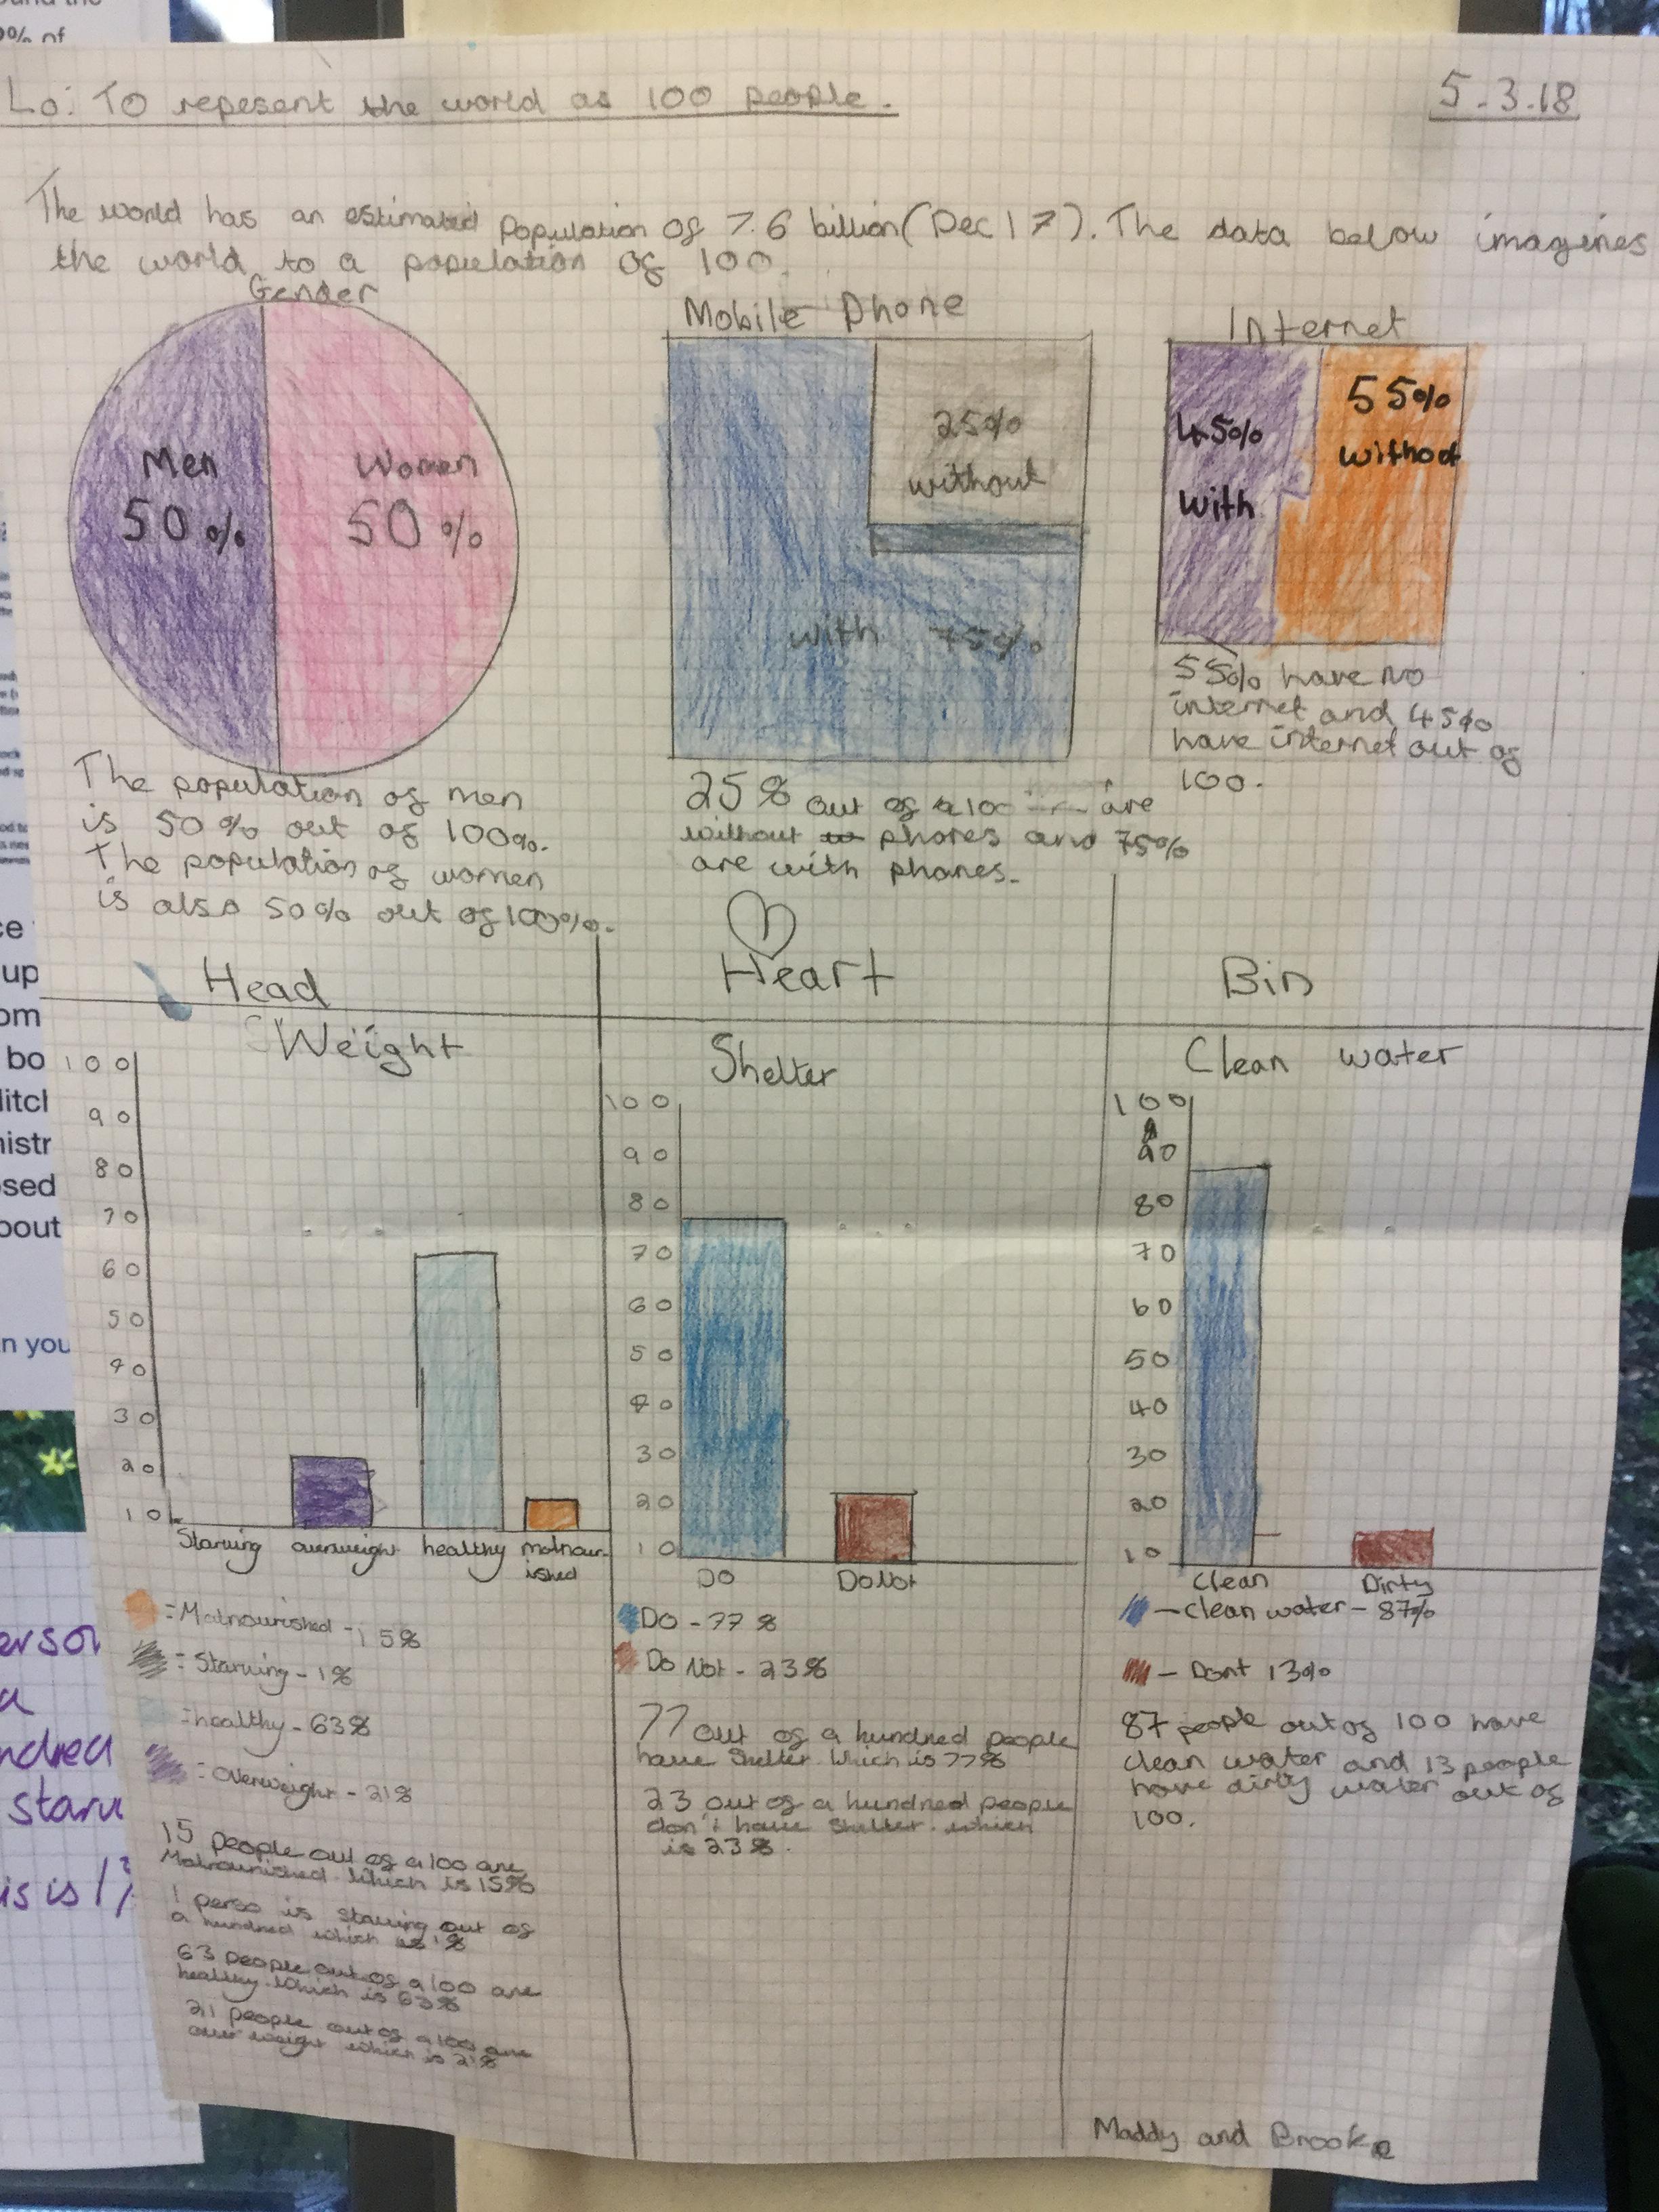 Lo: To repesent the world as 100 people.
5.3.18
The world has an estimated population of 7.6 billion (Dec 17). The data below imagines
the world to a population of 100.
Gender
Men
50%
Women
50%
The population of men
is 50% out of 100%.
The population of women
is also 50% out of 100%.
Mobile Phone
25%
without
with 75%
25% out of a 100 are
without phones and 75%
are with phones.
Internet
45%
with
55%
without
55% have no
internet and 45%
have internet out of
100.
Head
Weight
100
90
80
70
60
50
40
30
20
10
Starving overweight healthy malnour-
ished
=Malnourished - 15%
= Starving - 1%
=healthy - 63%
= Overweight - 21%
15 people out of a 100 are
Malnourished. Which is 15%
1 perso is starving out of
a hundred which is 1%
63 people out of a 100 are
healthy. Which is 63%
21 people out of a 100 are
over weight which is 21%
Heart
Shelter
100
90
80
70
60
50
40
30
20
10
DO Do Not
DO - 77%
Do Not - 23%
77 out of a hundred people
have Shelter. Which is 77%
23 out of a hundred people
don't have Shelter. which
is 23%.
Bin
Clean water
100
90
80
70
60
50
40
30
20
10
Clean Dirty
- Clean water - 87%
- Dont 13%
87 people out of 100 have
clean water and 13 people
have dirty water out of
100.
Maddy and Brooke
2% of
up
bo
pout
n you
a
is is